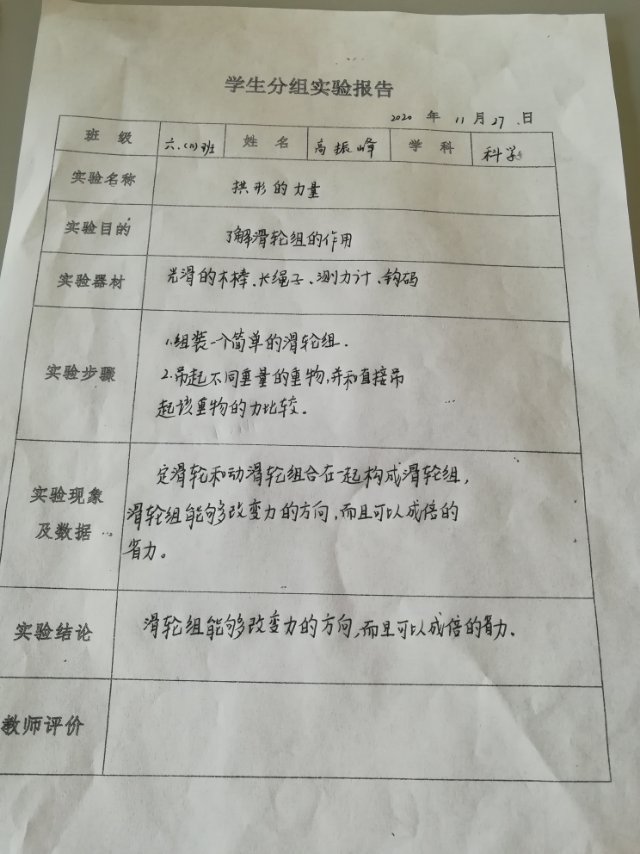 学生分组实验报告
2020 年 11 月 27 日
班 级 六.(1)班 姓 名 高振峰 学 科 科学
实验名称 拱形的力量
实验目的 了解滑轮组的作用
实验器材 光滑的木棒、长绳子、测力计、钩码
实验步骤
1.组装一个简单的滑轮组.
2.吊起不同重量的重物,并和直接吊
起该重物的力比较.
实验现象
及数据
定滑轮和动滑轮组合在一起构成滑轮组,
滑轮组能够改变力的方向,而且可以成倍的
省力。
实验结论 滑轮组能够改变力的方向,而且可以成倍的省力.
教师评价